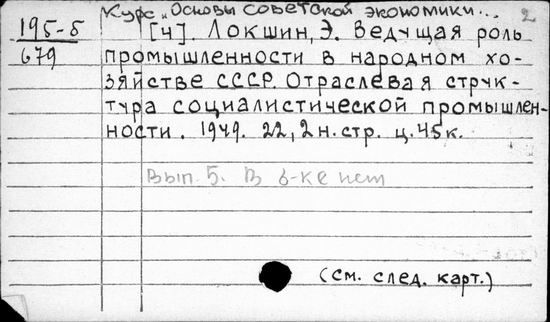 Курс „Основы советской экономики...
2
195-5
679
[4]. Локшин, Э. Ведущая роль
промышленности в народном хо-
зяйстве СССР. Отраслевая струк-
тура социалистической промышлен-
ности. 1949. 22, 2 н. стр. ц. 45 к.
Вып. 5. В б-ке нет
(см. след. карт.)